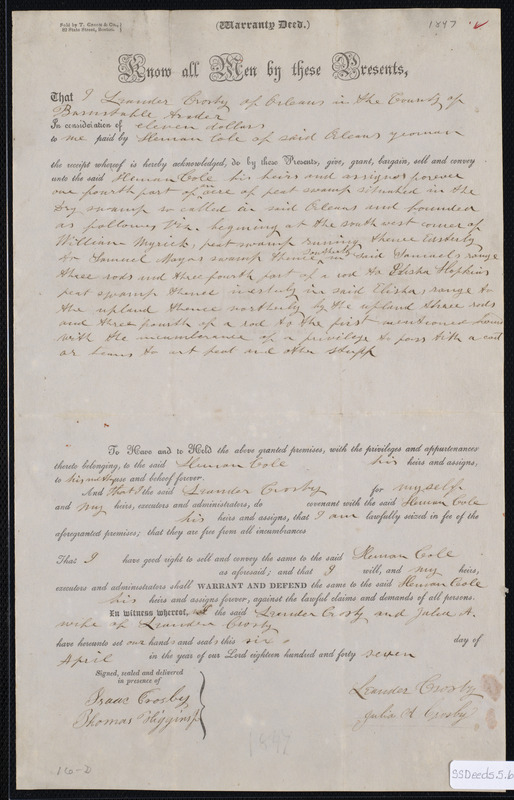 Sold by T. Groom & Co.,
82 State Street, Boston.
(Warranty Deed.)
1847
Know all Men by these Presents,
That I Leander Crosby of Orleans in the County of
Barnstable Trader
In consideration of eleven dollars
to me paid by Heman Cole of said Orleans yeoman
the receipt whereof is hereby acknowledged, do by these Presents, give, grant, bargain, sell and convey
unto the said Heman Cole his heirs and assigns forever
one fourth part of an acre of peat swamp situated in the
Dry swamp so called in said Orleans and bounded
as follows Viz. begining at the south west corner of
William Myrick, peat swamp running thence Easterly
to Samuel Mayos swamp thence southerly in said Samuels range
three rods and three fourth part of a rod to Elisha Hopkins
peat swamp thence westerly in said Elishas range to
the upland thence northerly by the upland three rods
and three fourth of a rod to the first mentioned bound
with the incumberance of a privilege to pass with a cart
or teams to cart peat and other stuff
To Have and to Hold the above granted premises, with the privileges and appurtenances
thereto belonging, to the said Heman Cole his heirs and assigns,
to his use and behoof forever.
And that I the said Leander Crosby for myself
and my heirs, executors and administrators, do covenant with the said Heman Cole
his heirs and assigns, that I am lawfully seized in fee of the
aforegranted premises; that they are free from all incumbrances
That I have good right to sell and convey the same to the said Heman Cole
as aforesaid; and that I will, and my heirs,
executors and administrators shall WARRANT AND DEFEND the same to the said Heman Cole
his heirs and assigns forever, against the lawful claims and demands of all persons.
In witness whereof, I the said Leander Crosby and Julia A.
wife of Leander Crosby
have hereunto set our hands and seals this six day of
April in the year of our Lord eighteen hundred and forty seven
Signed, sealed and delivered
in presence of
Isaac Crosby
Thomas Higgins
Leander Crosby
Julia A Crosby
1847
16-D
SSDeeds5.6